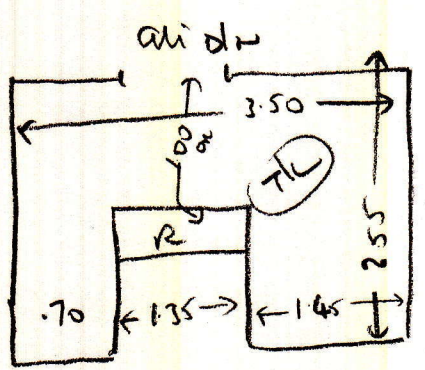 ali dr
3.50
T/L
R
2.55
.70
1.35
1.45